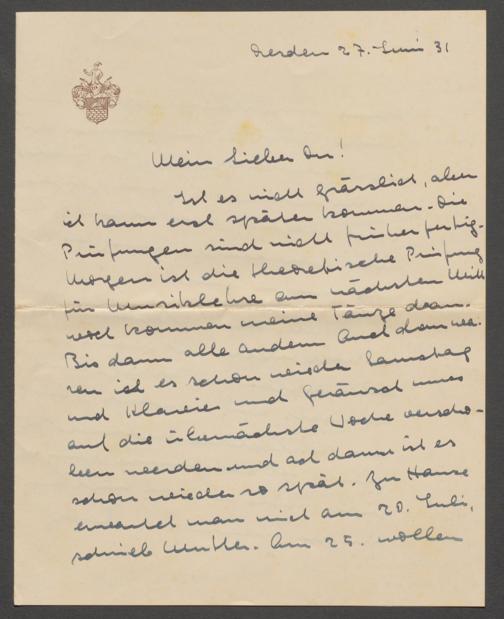 Dresden 27. Juni 31
Mein lieber Du!
Ist es nicht grässlich, aber
ich kann erst später kommen. Die
Prüfungen sind nicht früher fertig.
Morgen ist die theoretische Prüfung
für Musiklehre am nächsten Mitt
woch kommen meine Tänze dran.
Bis dann alle andern
ich es schon wieder Samstag
und Klavier und Geräusch muss
auf die übernächste Woche verscho-
ben werden und ach dann ist es
schon wieder so spät. Zu Hause
erwartet man mich am 20. Juli,
schrieb Mutter. Am 25. wollen